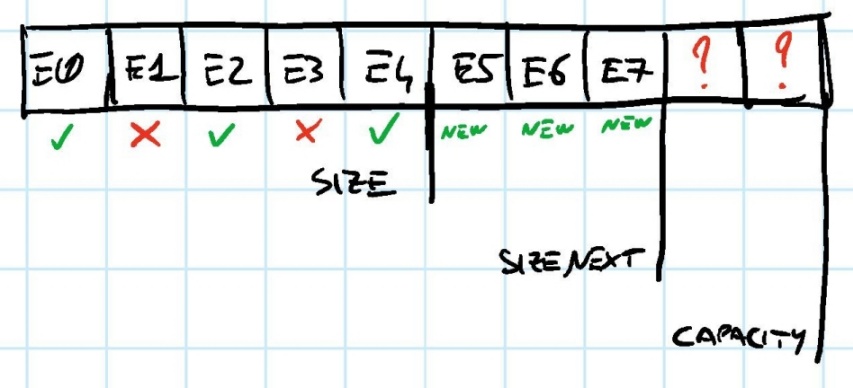 E0 E1 E2 E3 E4 E5 E6 E7 ? ?
✓ ✗ ✓ ✗ ✓ NEW NEW NEW
SIZE
SIZENEXT
CAPACITY